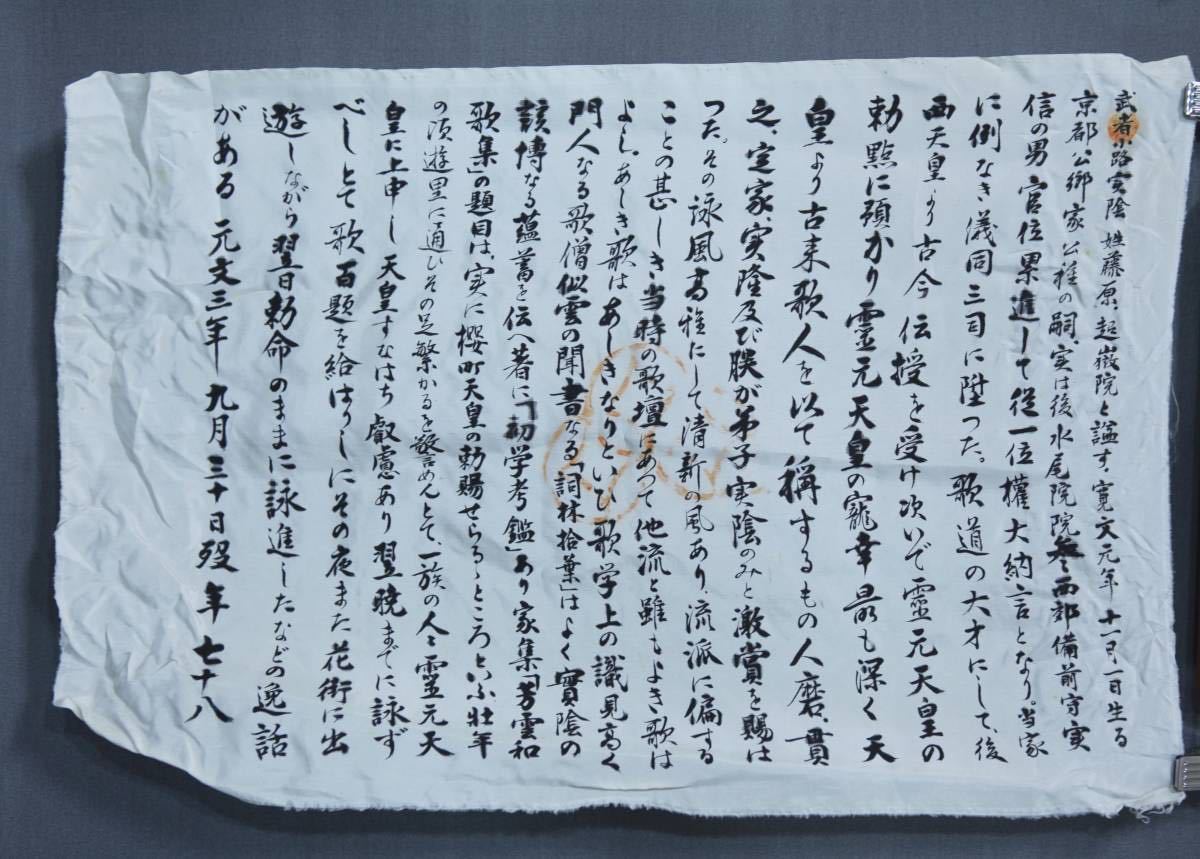 武者小路実陰 姓藤原、超嶽院と諡す、寛文元年十一月一日生る
京都公卿家公種の嗣、実は後水尾院院参西郊備前守実
信の男 官位累進して従一位權大納言となり。当家
に例なき儀同三司に陞つた。歌道の大才にして、後
西天皇より古今伝授を受け次いで霊元天皇の
勅點に預かり霊元天皇の寵幸最も深く天
皇より古来歌人を以て稱するもの人磨、貫
之、定家、実隆及び朕が弟子実陰のみと激賞を賜は
つた。その詠風高雅にして清新の風あり、流派に偏する
ことの甚しき当時の歌壇にあつて他流と雖もよき歌は
よし、あしき歌はあしきなりといひ歌学上の識見高く
門人なる歌僧似雲の聞書なる「詞林拾葉」はよく實陰の
該博なる蘊蓄を伝へ著に「初学考鑑」あり家集「芳雲和
歌集」の題目は、実に櫻町天皇の勅賜せらるゝところといふ壮年
の頃遊里に通ひその足繁かるを警めんとて、一族の人々霊元天
皇に上申し 天皇すなはち叡慮あり翌暁までに詠ず
べしとて歌百題を給はりしにその夜また花街に出
遊しながら翌日勅命のままに詠進したなどの逸話
がある 元文三年九月三十日歿年七十八